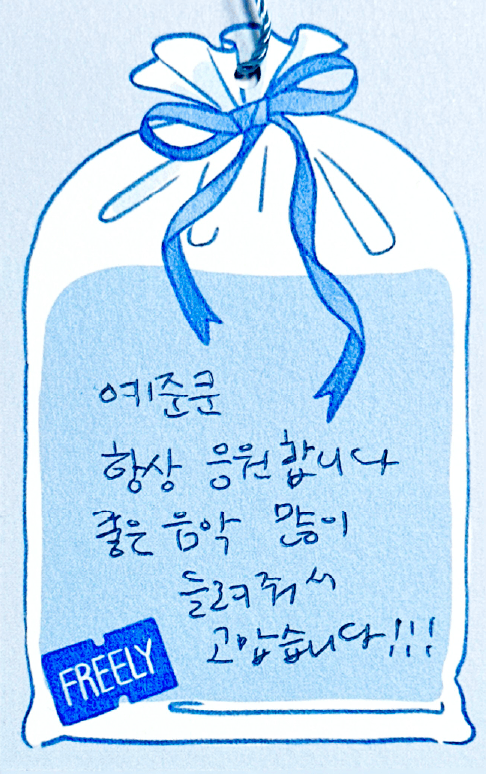 예준쿤
항상 응원합니다
좋은 음악 많이
들려줘서
고맙습니다!!!
FREELY